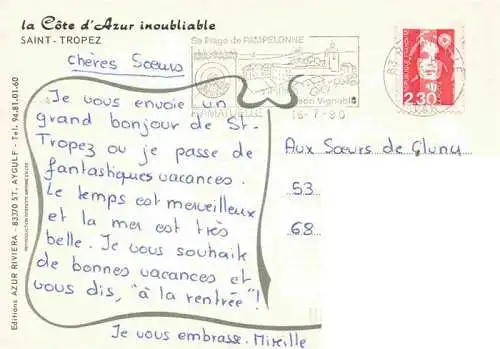 la Côte d'Azur inoubliable
SAINT-TROPEZ
Sa Plage de PAMPELONNE
RAMATUELLE
Son Vignoble
16-7-90
2,30
chères Sœurs
Je vous envoie un
grand bonjour de St-
Tropez ou je passe de
fantastiques vacances.
Le temps est merveilleux
et la mer est très
belle. Je vous souhaite
de bonnes vacances et
vous dis, "à la rentrée"!
Je vous embrasse. Mireille
Aux Sœurs de Cluny
53
68
Editions AZUR RIVIERA - 83370 ST. AYGULF - Tel. 94.81.01.60